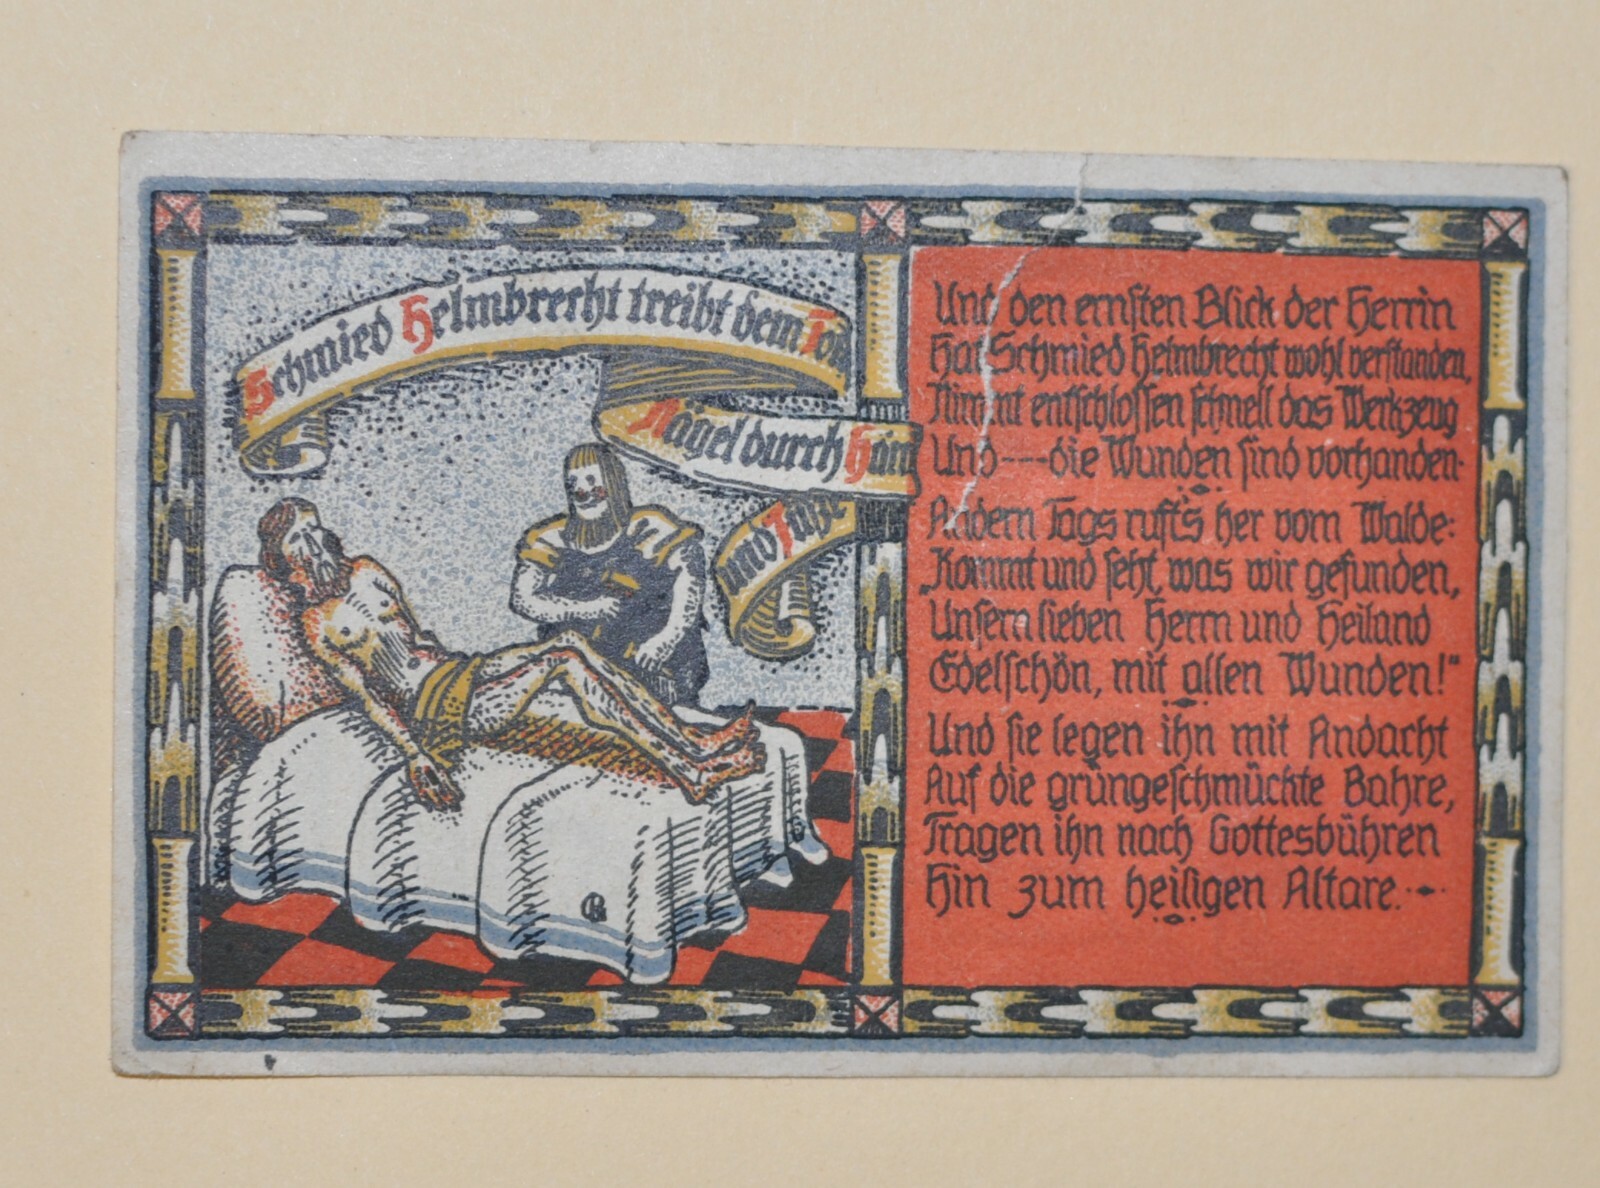 Schmied Helmbrecht treibt dem Tot
Nägel durch Hän
und Füße
Und den ernsten Blick der Herrin
Hat Schmied Helmbrecht wohl verstanden,
Nimmt entschlossen schnell das Werkzeug
Und---die Wunden sind vorhanden.
Andern Tags ruft's her vom Walde:
„Kommt und seht, was wir gefunden,
Unsern lieben Herrn und Heiland
Edelschön, mit allen Wunden!"
Und sie legen ihn mit Andacht
Auf die grüngeschmückte Bahre,
Tragen ihn nach Gottesbühren
Hin zum heiligen Altare.